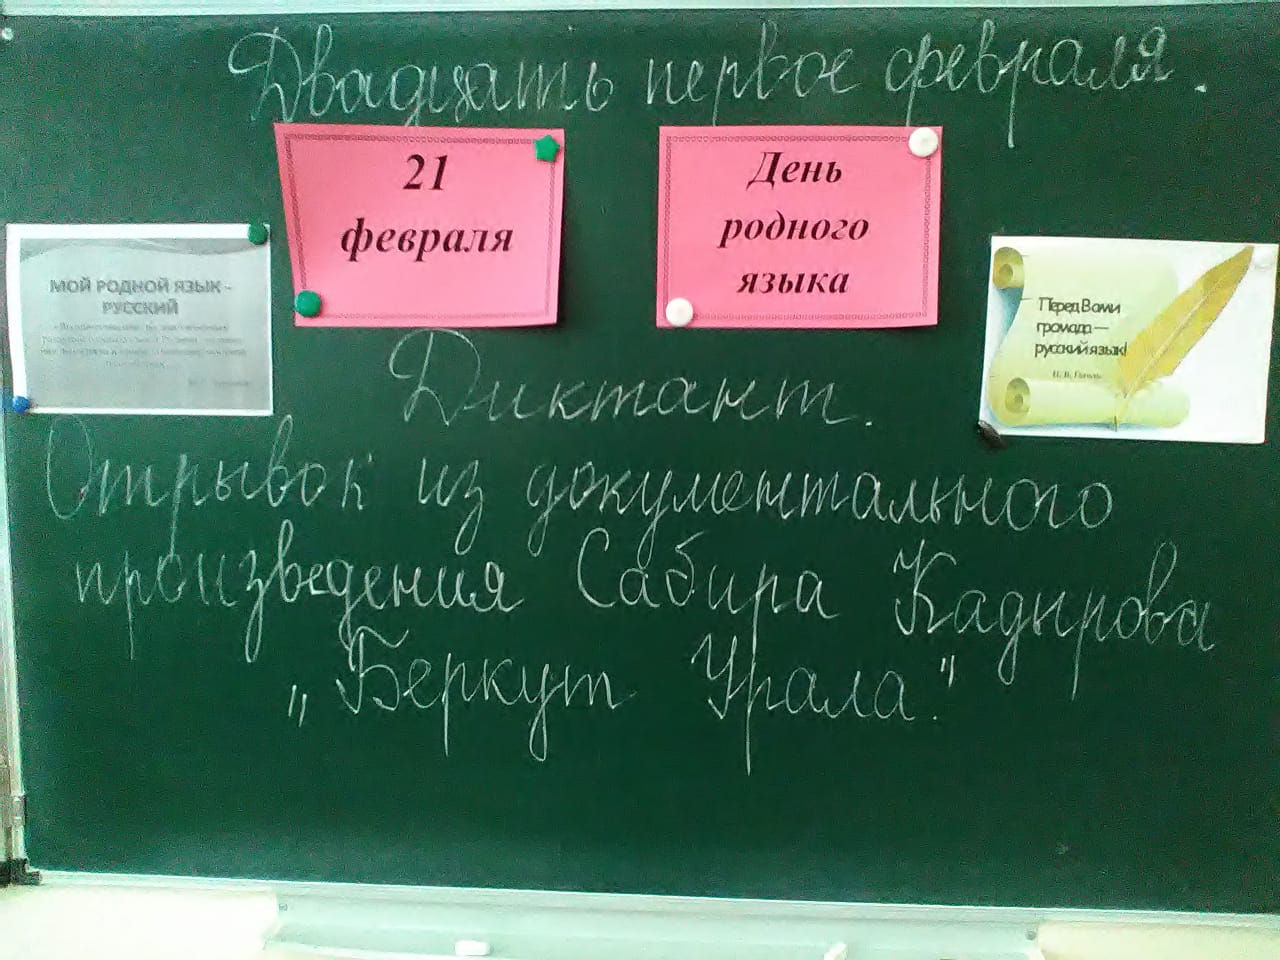 Двадцать первое февраля.
21
февраля
День
родного
языка
МОЙ РОДНОЙ ЯЗЫК -
РУССКИЙ
Перед Вами
громада —
русский язык!
Н. В. Гоголь
Диктант.
Отрывок из документального
произведения Сабира Кадырова
„Беркут Урала."